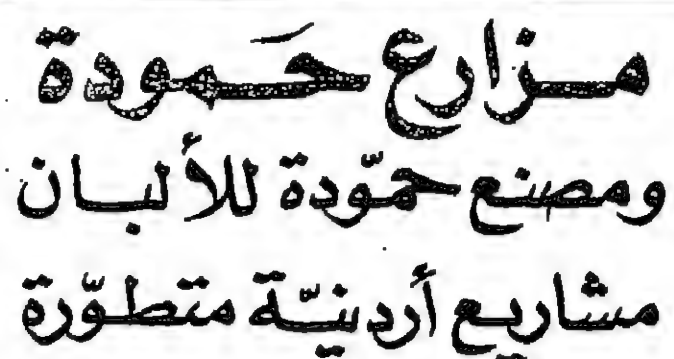 مزارع حَمودة
ومصنع حمّودة للألبان
مشاريع أردنيّة متطوّرة